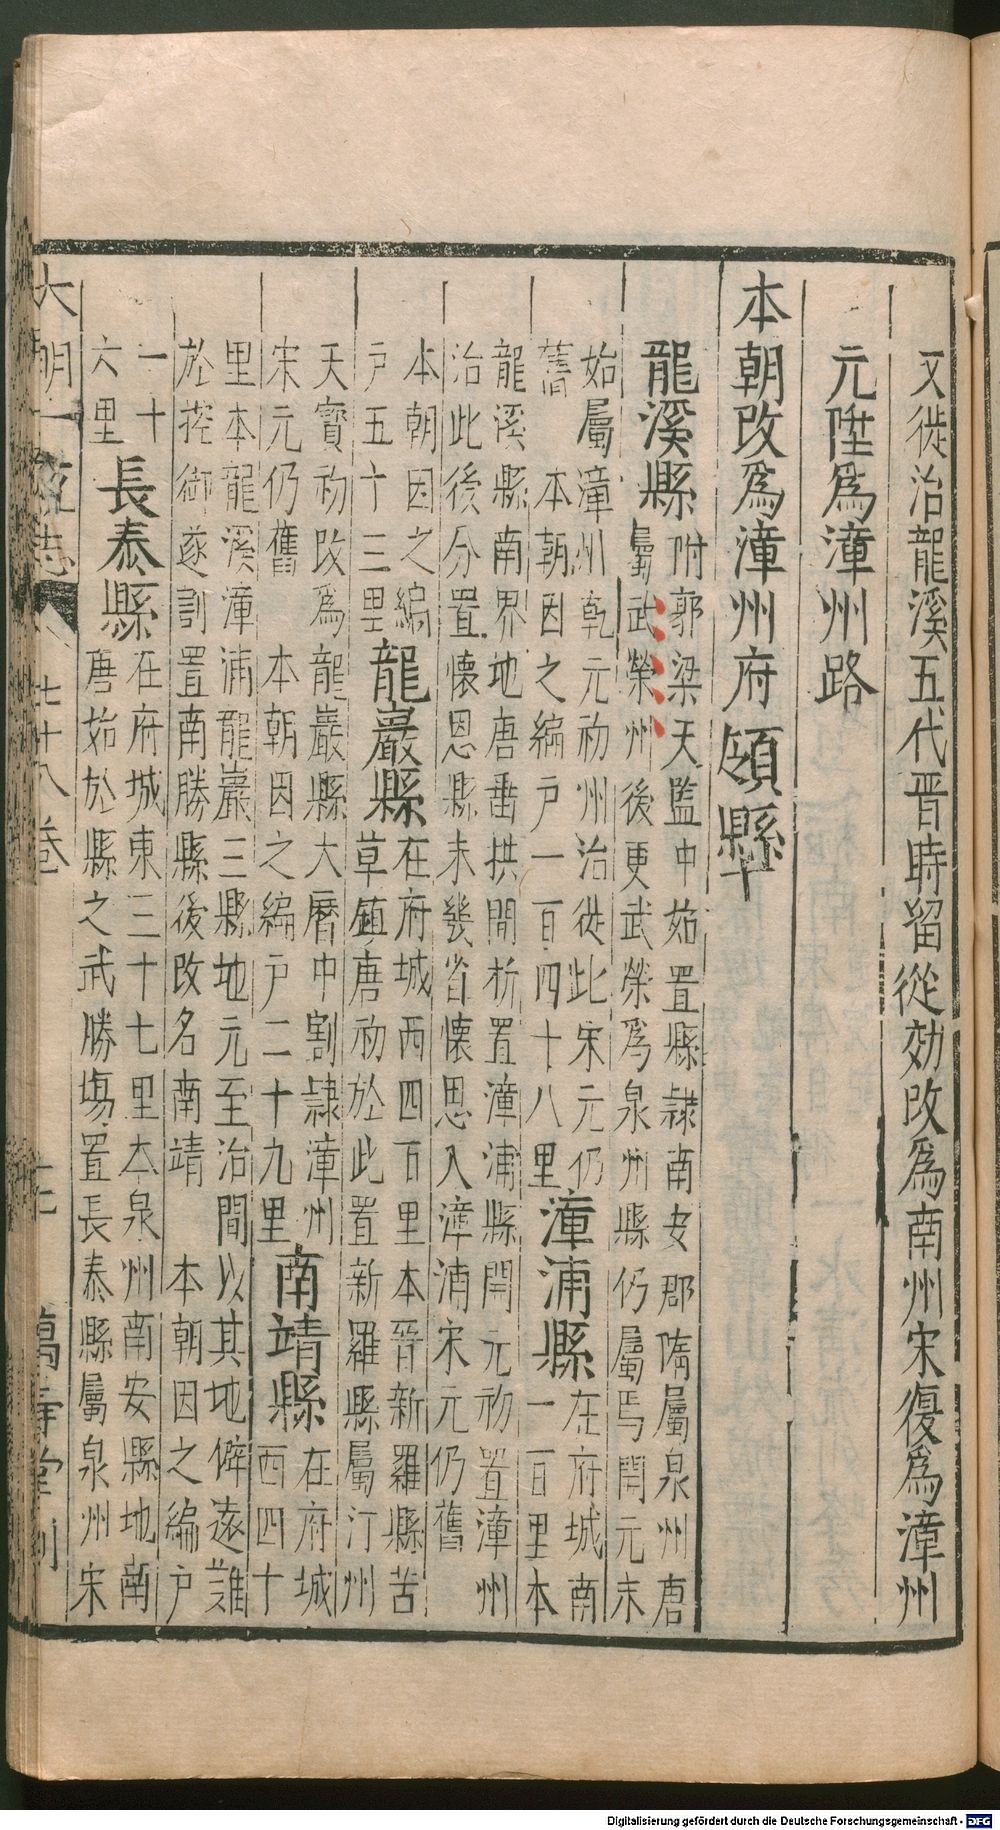 又徙治龍溪五代晋時留從効改爲南州宋復爲漳州
元陞爲漳州路
本朝改爲漳州府領縣
龍溪縣
附郭梁天監中始置縣隷南安郡隋屬泉州唐
屬武榮州後更武榮爲泉州縣仍屬焉開元末
始屬漳州乾元初州治徙此宋元仍
舊 本朝因之編户一百四十八里
漳浦縣
在府城南
一百里本
龍溪縣南界地唐垂拱間析置漳浦縣開元初置漳州
治此後分置懷恩縣未幾省懷恩入漳浦宋元仍舊
本朝因之編
户五十三里
龍巖縣
在府城西四百里本晉新羅縣苦
草鎮唐初於此置新羅縣屬汀州
天寶初改爲龍巖縣大曆中割隷漳州
宋元仍舊 本朝因之編户二十九里
南靖縣
在府城
西四十
里本龍溪漳浦龍巖三縣地元至治間以其地僻遠難
於控御遂割置南勝縣後改名南靖 本朝因之編户
一十
六里
長泰縣
在府城東三十七里本泉州南安縣地南
唐始於縣之武勝場置長泰縣屬泉州宋
大明一統志 七十八卷 萬壽堂刊
Digitalisierung gefördert durch die Deutsche Forschungsgemeinschaft - DFG